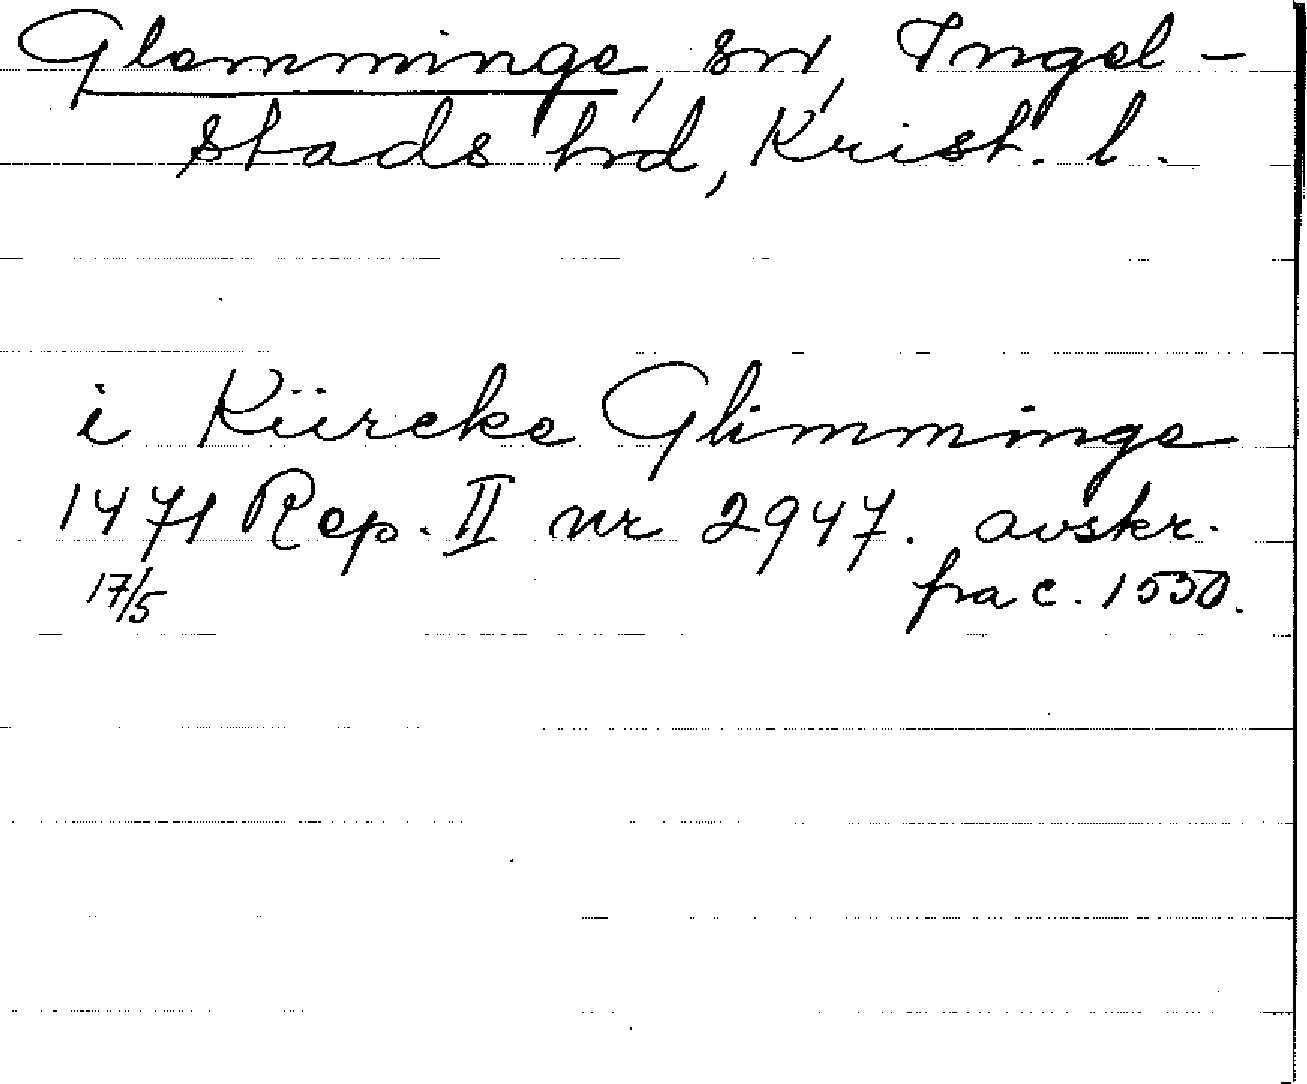 Glemminge, sn, Ingel-
stads hrd, Krist. l.
i Kiircke Glimminge
1471 Rep. II nr 2947. avskr.
17/5 fra c. 1550.